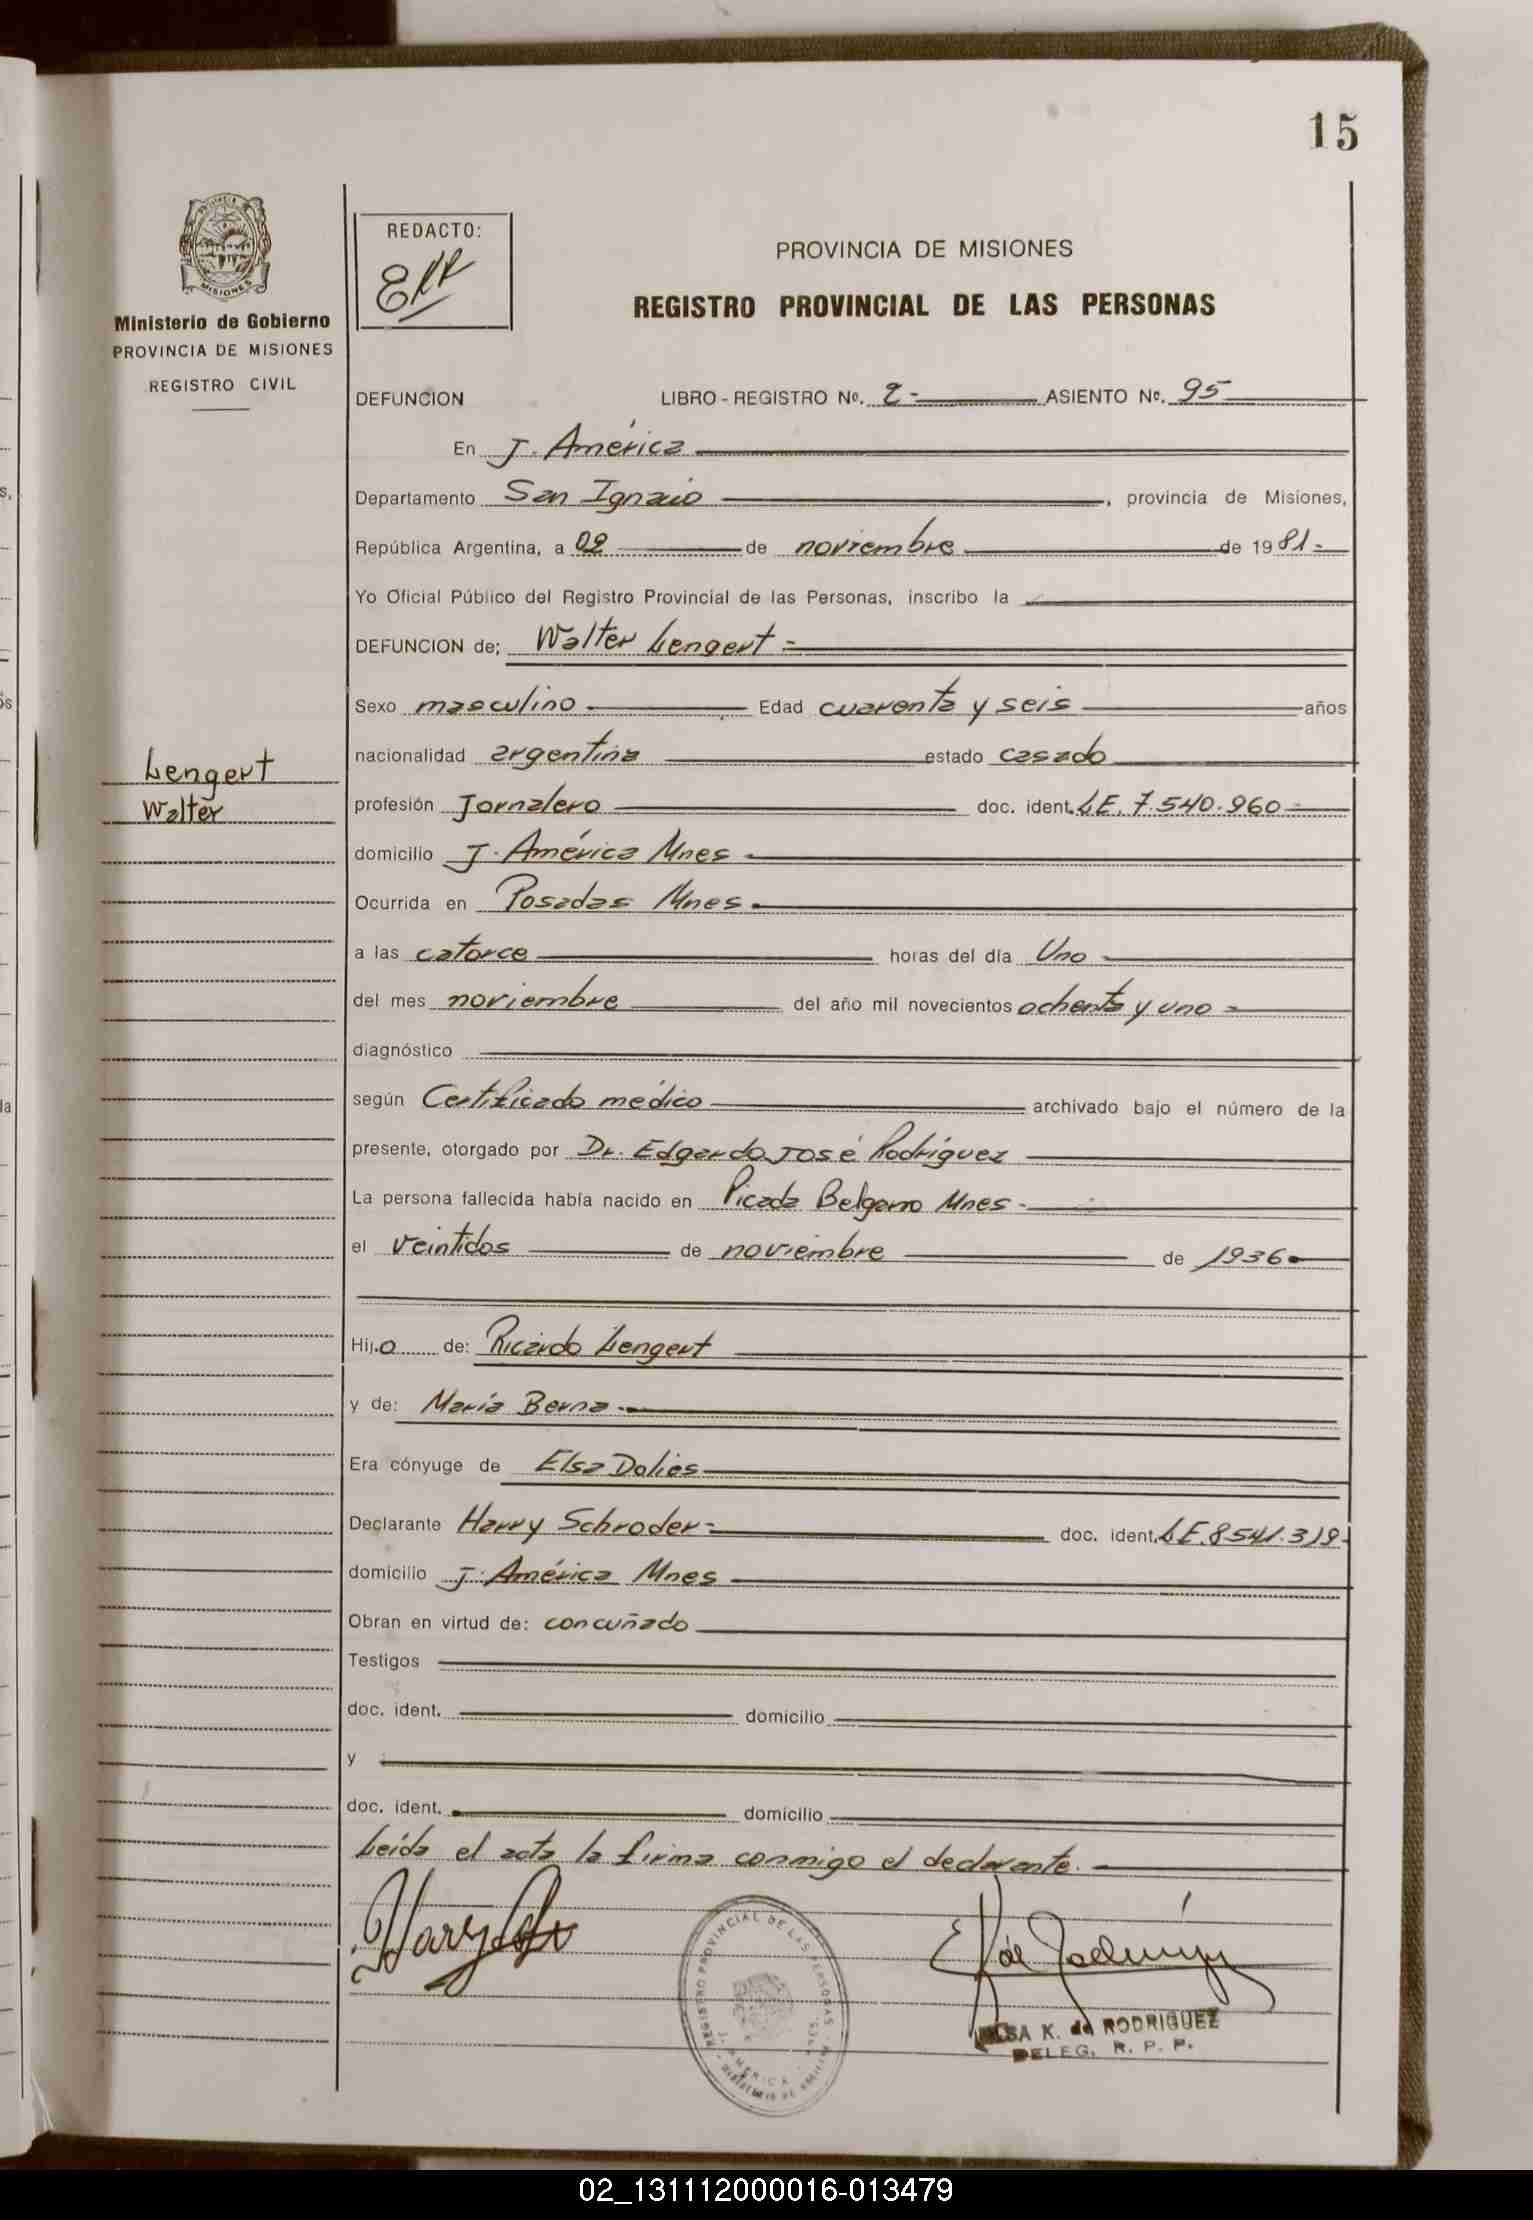 15
MISIONES
Ministerio de Gobierno
PROVINCIA DE MISIONES
REGISTRO CIVIL
REDACTO:
PROVINCIA DE MISIONES
REGISTRO PROVINCIAL DE LAS PERSONAS
DEFUNCION LIBRO - REGISTRO Nº. 2 - ASIENTO Nº. 95
En J. América
Departamento San Ignacio, provincia de Misiones,
República Argentina, a 02 de noviembre de 1981-
Yo Oficial Público del Registro Provincial de las Personas, inscribo la
DEFUNCION de; Walter Lengert -
Sexo masculino Edad cuarenta y seis años
nacionalidad argentina estado casado
Lengert
Walter
profesión Jornalero doc. ident. LE. 7.540.960
domicilio J. América Mnes
Ocurrida en Posadas Mnes.
a las catorce horas del día Uno
del mes noviembre del año mil novecientos ochenta y uno -
diagnóstico
según Certificado médico archivado bajo el número de la
presente, otorgado por Dr. Edgardo José Rodríguez
La persona fallecida había nacido en Picada Belgrano Mnes -
el veintidos de noviembre de 1936
Hijo de: Ricardo Lengert
y de: María Berna
Era cónyuge de Elsa Dolies
Declarante Harry Schroder - doc. ident. LE. 8541.319-
domicilio J. América Mnes
Obran en virtud de: concuñado
Testigos
doc. ident. domicilio
y
doc. ident. domicilio
Leída el acta la firma conmigo el declarante.
REGISTRO PROVINCIAL DE LAS PERSONAS
J. AMERICA
ELSA K. de RODRIGUEZ
DELEG. R. P. P.
02_131112000016-013479